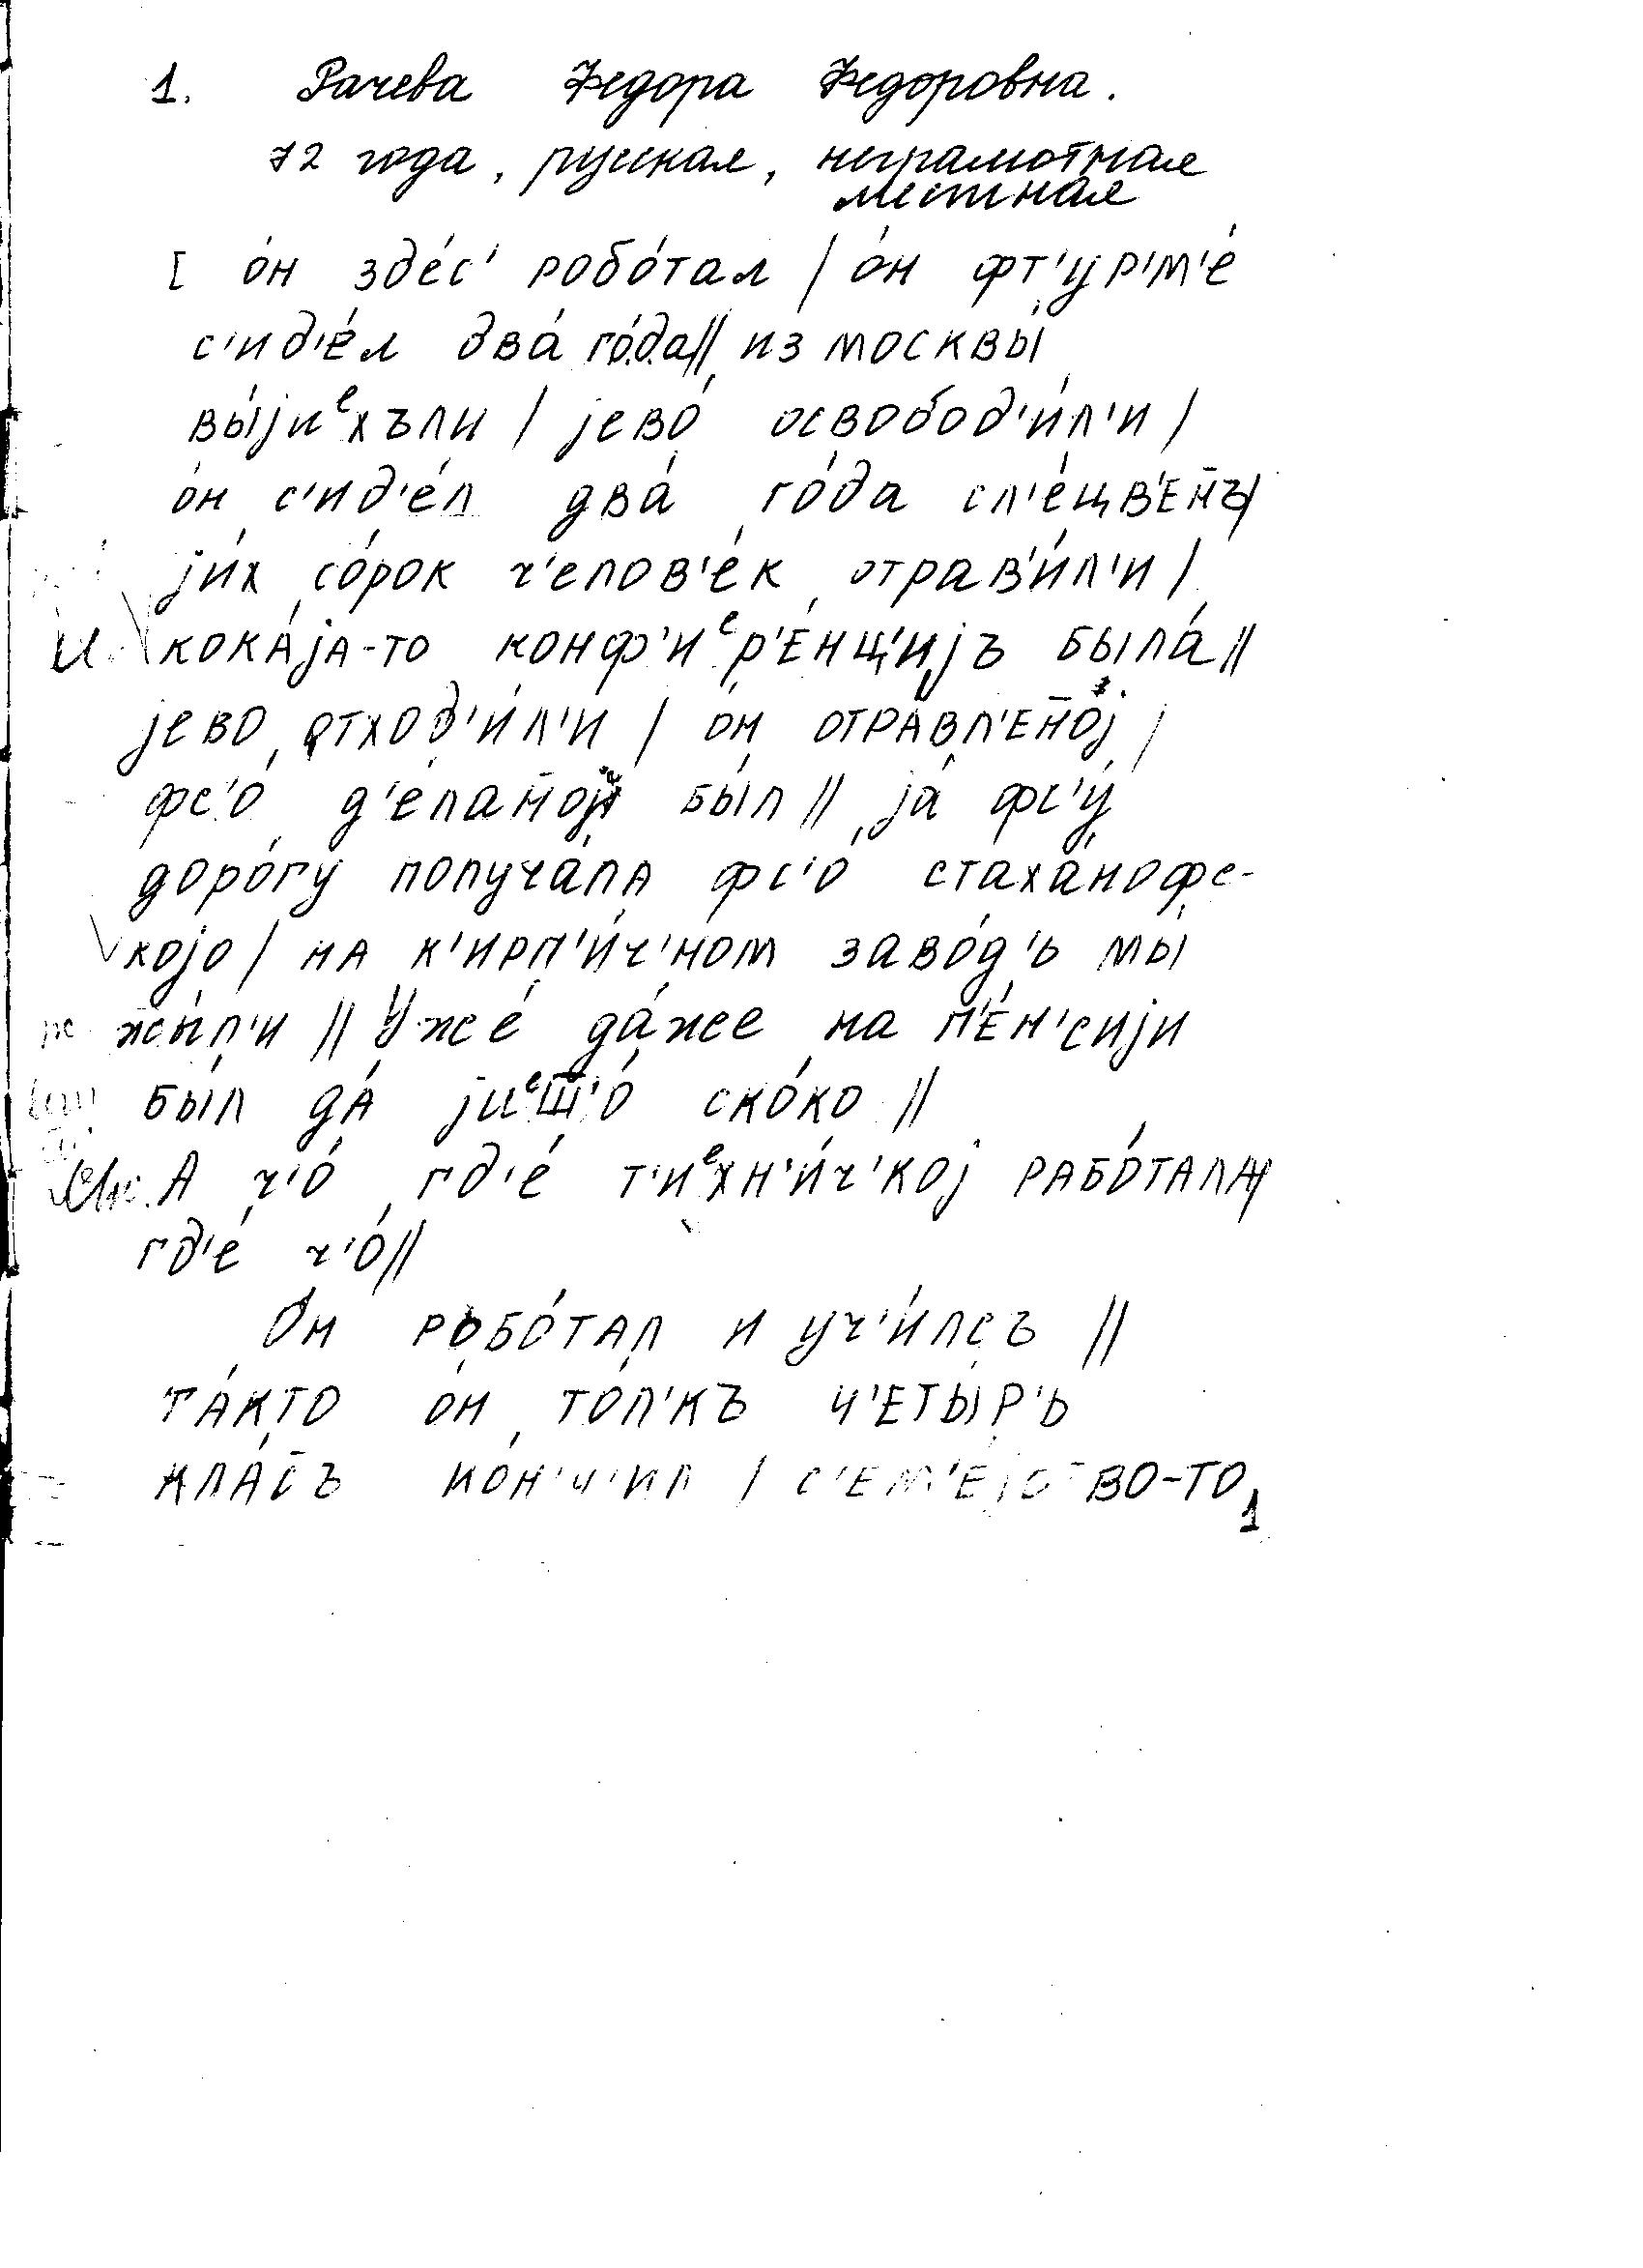 1. Рачева Федора Федоровна.
72 года, русская, неграмотная
местная
[ о́н зде́с' робо́тал / о́н фт'ур'м'е́
с'ид'е́л два́ го́да // из москвы́
вы́jиᵉхъли / jево́ освобод'и́л'и /
о́н с'ид'е́л два́ го́да сп'е́цв'ен̄ъ/
jи́х со́рок ч'елов'е́к отрав'и́л'и /
кока́jа-то конф'иᵉр'е́нц'иjъ была́ //
jево отход'и́л'и / о́н отра́вл'ен̄оj /
фс'о́ д'е́лан̄оj бы́л // jа́ фс'у́
доро́гу получа́ла фс'о́ стаха́нофс-
коjо / на к'ирп'и́ч'ном заво́д'ь мы́
жы́л'и // Уже́ да́же на п'е́н'сиjи
бы́л да́ jиᵉш̄'о́ ско́ко //
А ч'о́ гд'е́ т'иᵉхн'и́ч'коj рабо́тала/
гд'е́ ч'о́//
О́н робо́тал и уч'и́лсъ //
та́кто о́н то́л'къ ч'еты́р'ь
кла́с̄ъ ко́н'ч'ил / с'ем'е́jство-то
1